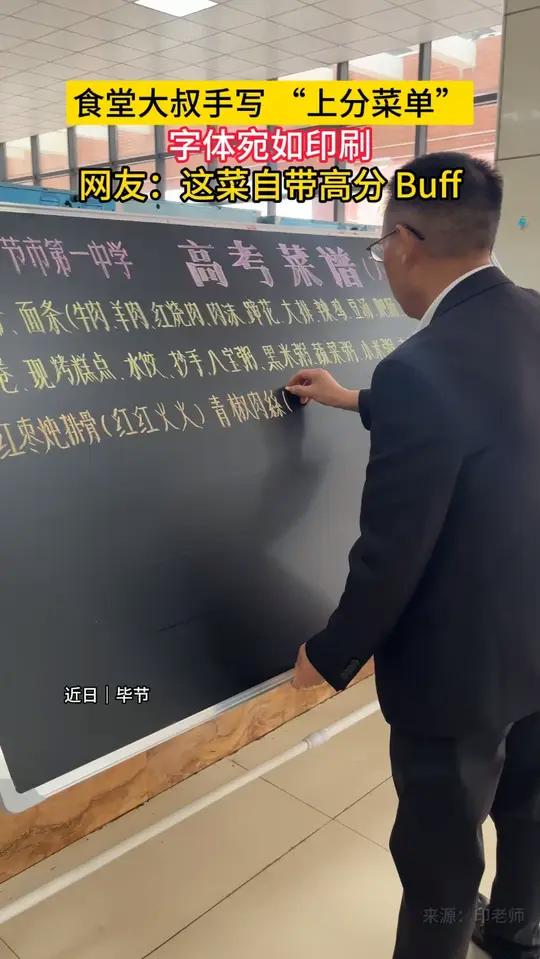 食堂大叔手写 “上分菜单”
字体宛如印刷
网友：这菜自带高分 Buff
节市第一中学 高考菜谱(
、面条(牛肉、羊肉、红烧肉、肉沫、蹄花、大排、辣鸡、豆汤、
卷、现烤糕点、水饺、抄手、八宝粥、黑米粥、蔬菜粥、小米粥、
红枣炖排骨(红红火火) 青椒肉丝(
近日｜毕节
来源：印老师